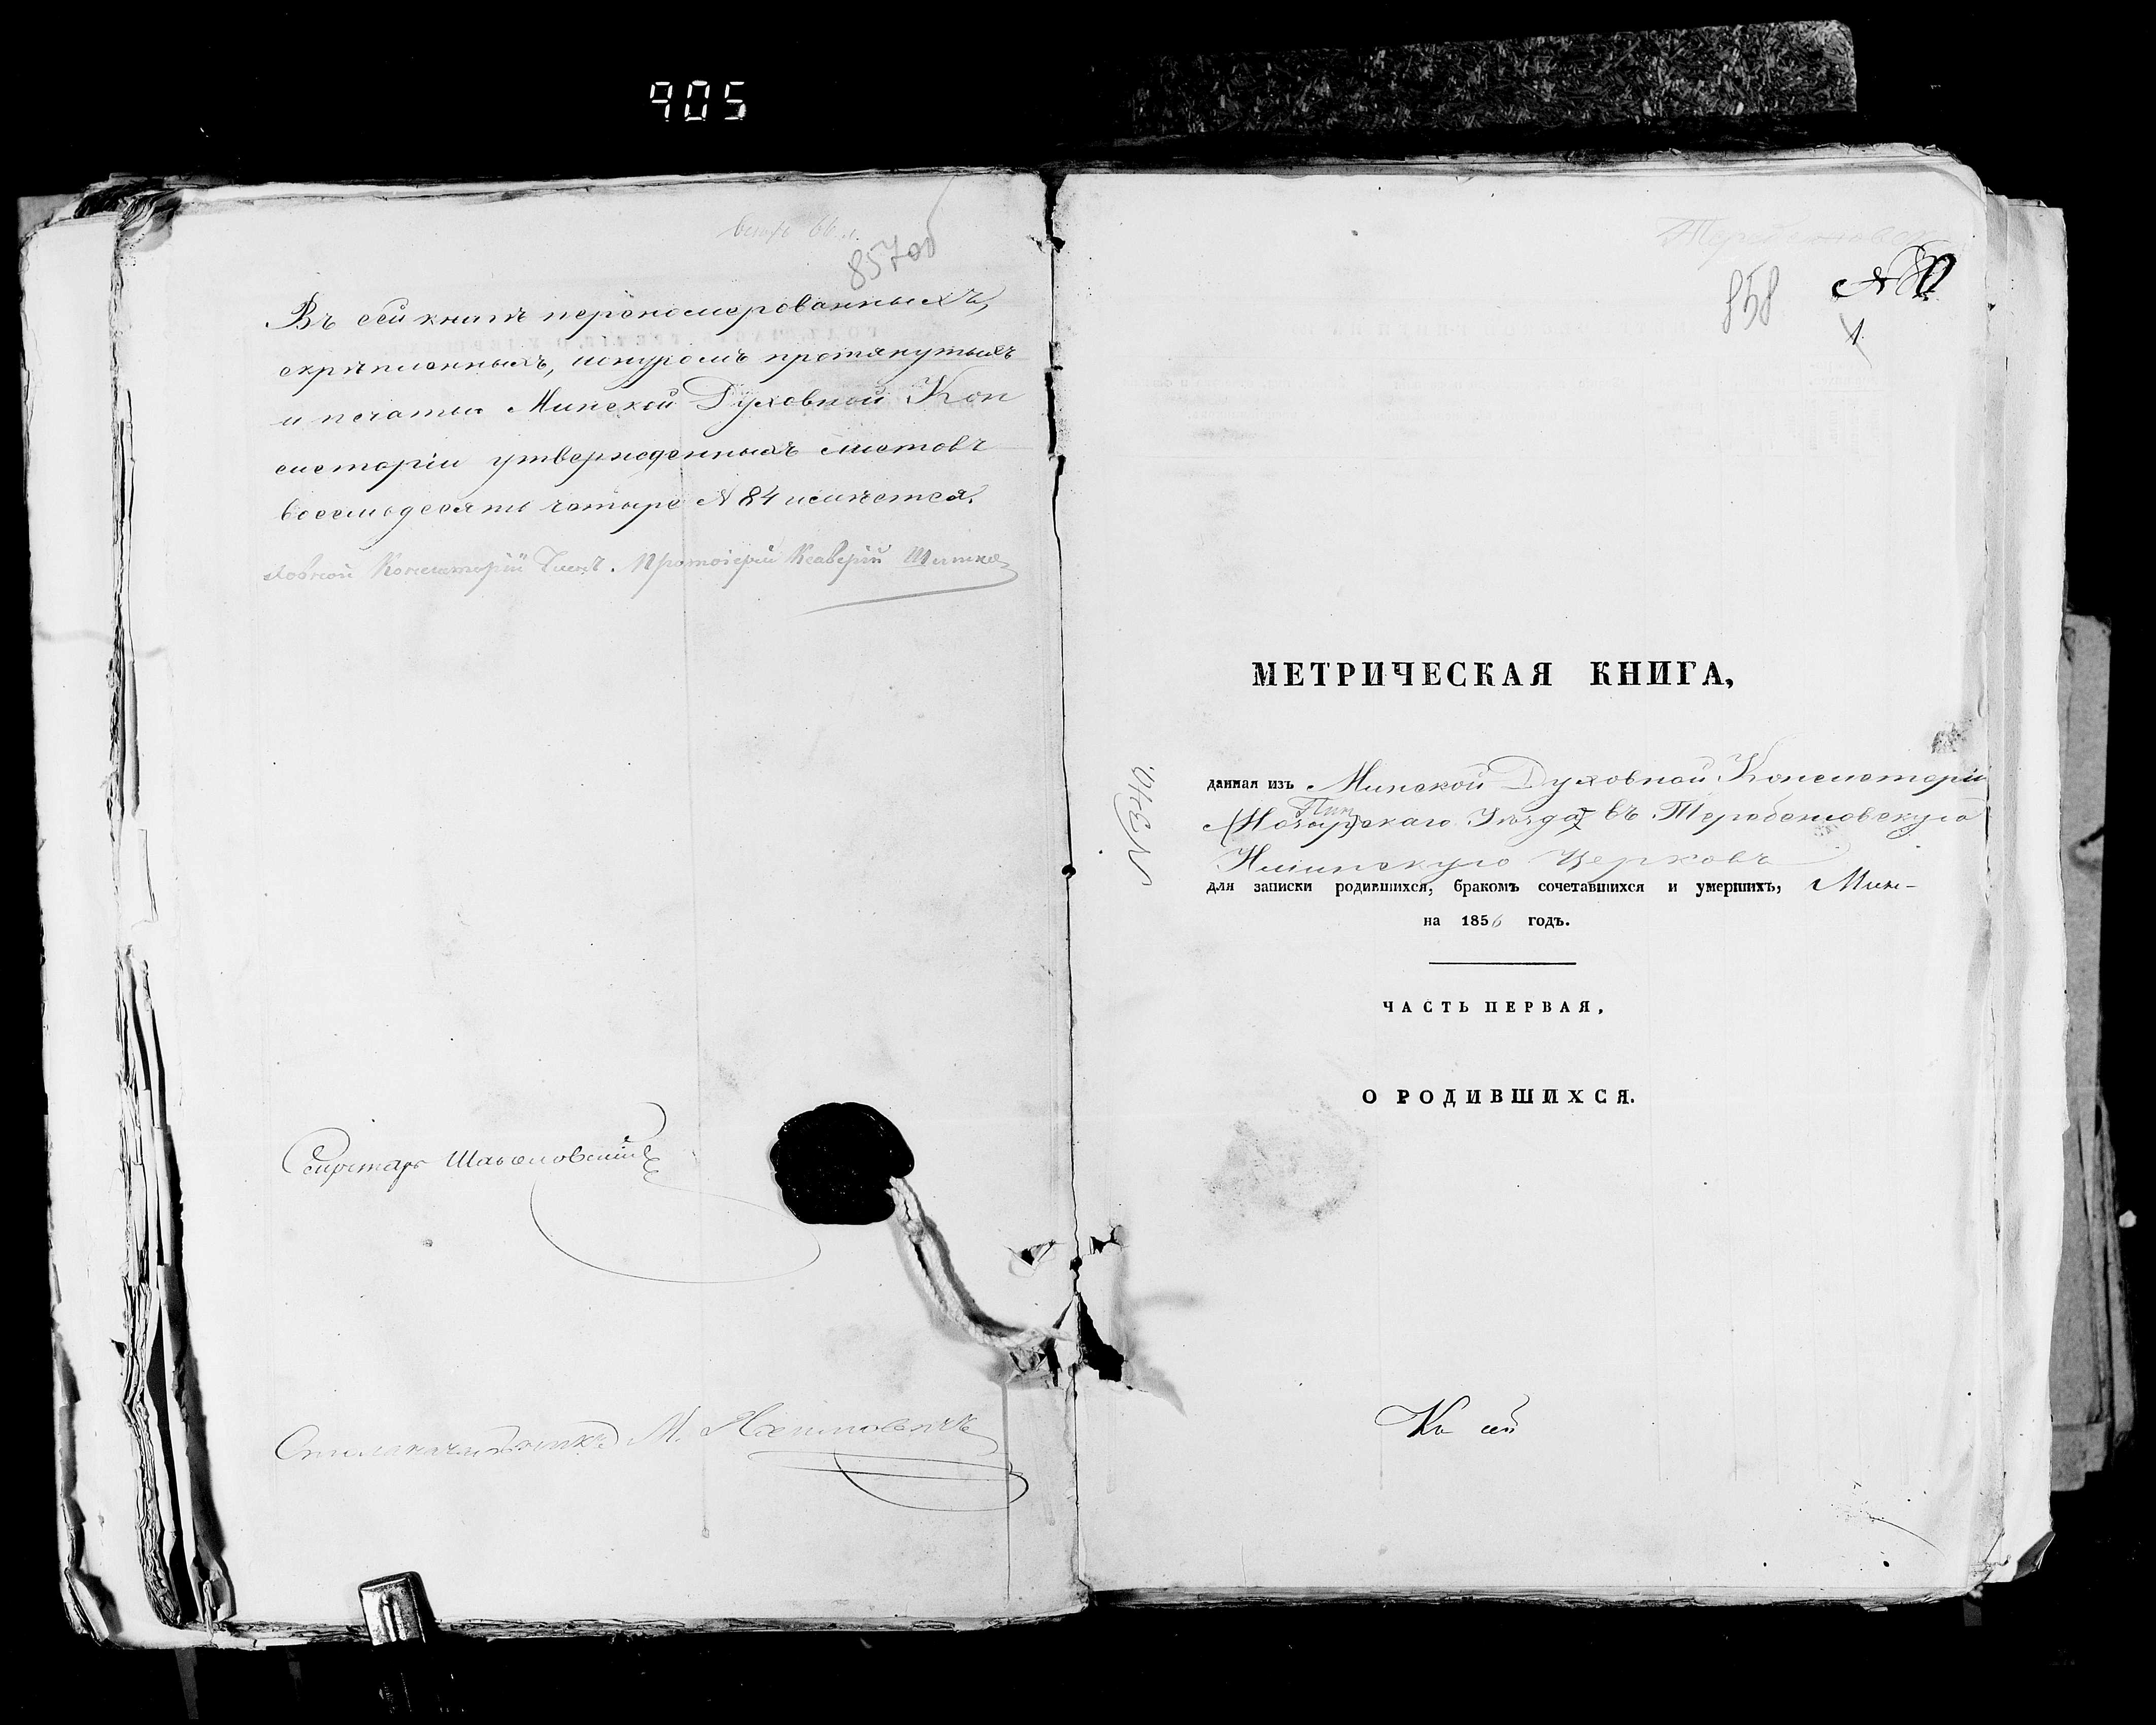 905
всѣхъ 66 л.
857об
Въ сей книгѣ перенумерованныхъ,
скрѣпленныхъ, шнуромъ протянутыхъ
и печатью Минской Духовной Кон
систоріи утвержденныхъ листовъ
восемьдесятъ четыре № 84 имѣется.
ховной Консисторіи Членъ. Протоіерей Ксаверій
Секретарь
Столоначальникъ М.
Теребежовск
858
1.
МЕТРИЧЕСКАЯ КНИГА,
№ 340.
данная изъ Минской Духовной Консисторіи
Пин
(Мозыр)скаго Уѣзда въ Теребежовскую
Ильинскую Церковь
для записки родившихся, бракомъ сочетавшихся и умершихъ, Мин-
на 1856 годъ.
ЧАСТЬ ПЕРВАЯ,
О РОДИВШИХСЯ.
Къ сей